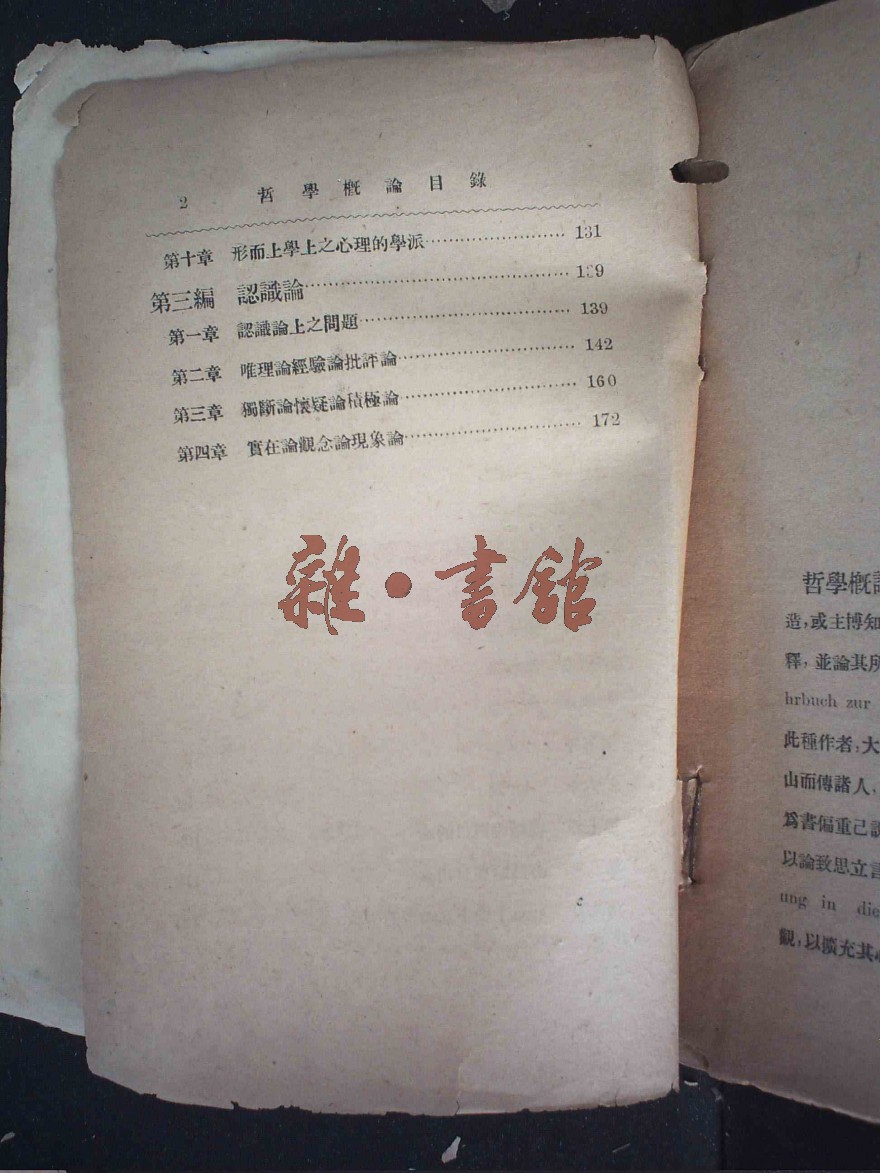 2 哲學概論目錄
第十章 形而上學上之心理的學派 131
第三編 認識論 139
第一章 認識論上之問題 139
第二章 唯理論經驗論批評論 142
第三章 獨斷論懷疑論積極論 160
第四章 實在論觀念論現象論 172
雜·書館
哲學概
造,或主博知
釋,並論其所
hrbuch zur
此種作者,大
山而傳諸人,
爲書偏重己
以論致思立言
ung in die
觀,以擴充其心